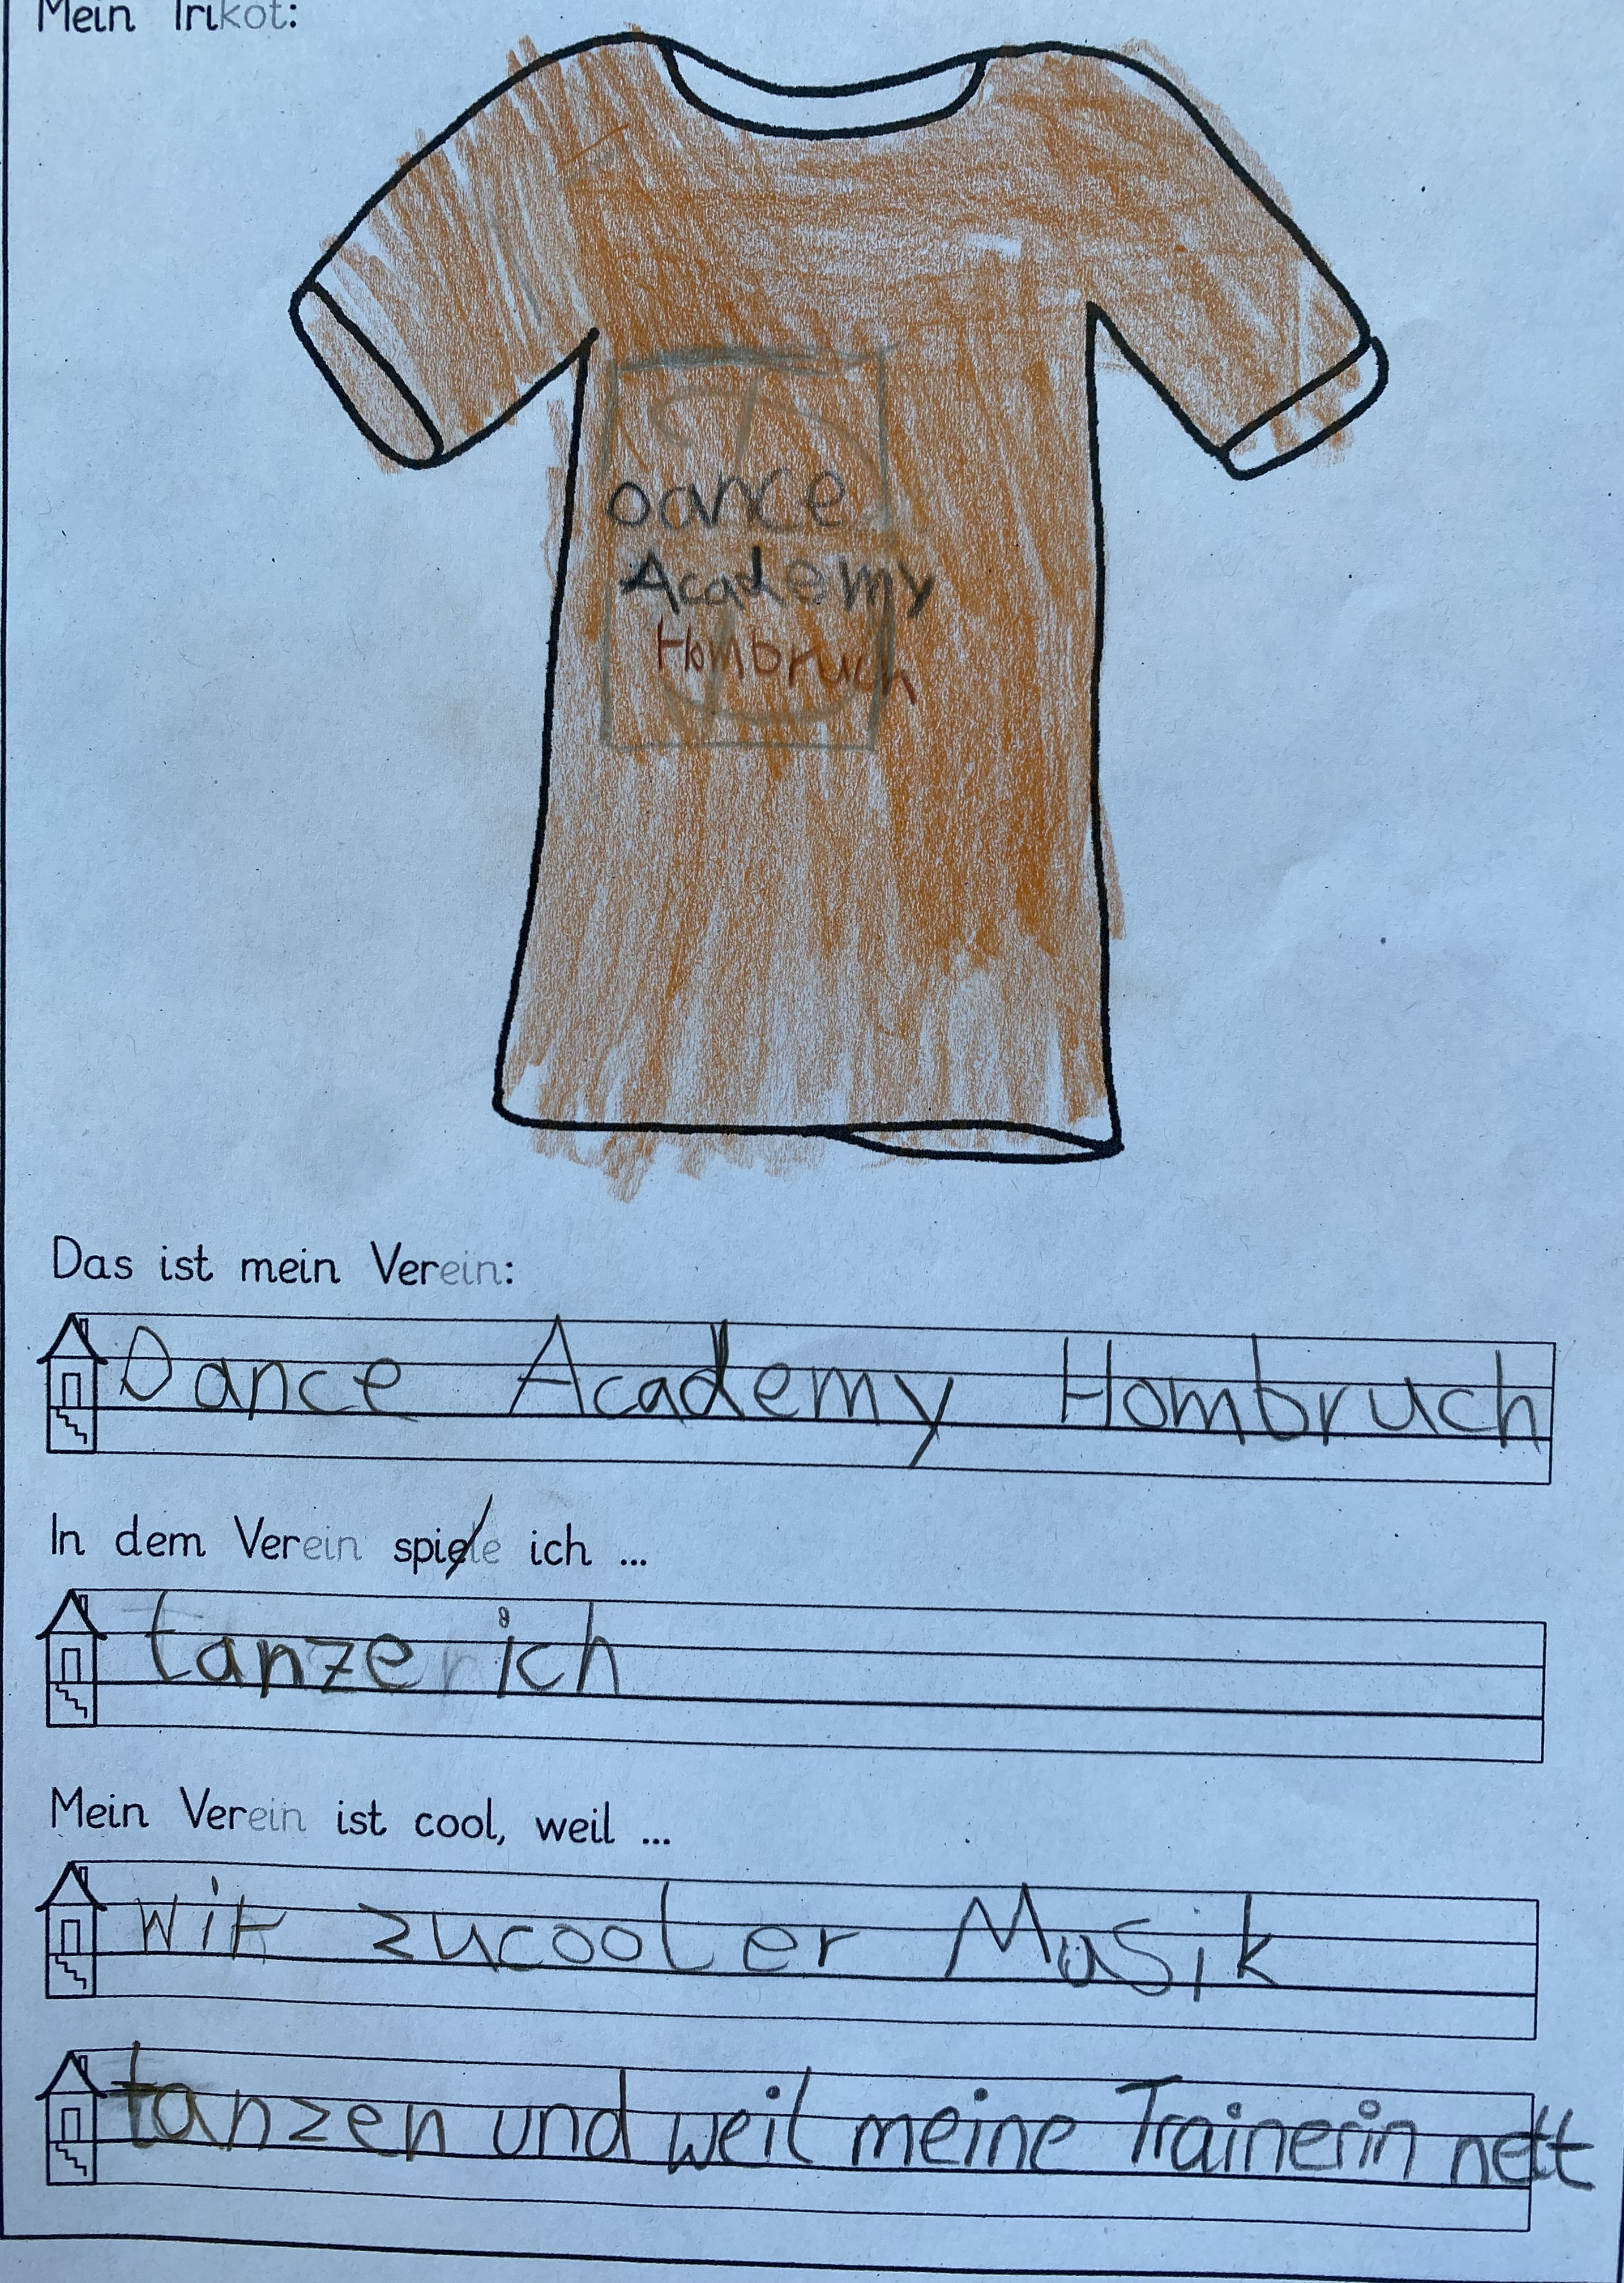 Mein Trikot:
Dance
Academy
Hombruch
Das ist mein Verein:
Dance Academy Hombruch
In dem Verein spiele ich ...
tanze ich
Mein Verein ist cool, weil ...
wir zucooler Musik
tanzen und weil meine Trainerin nett